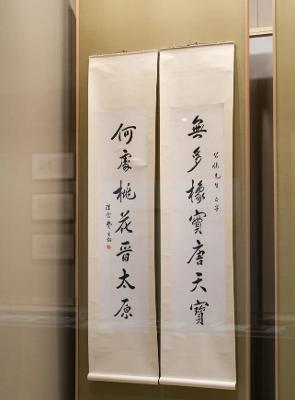 無多椽實唐天寶
何處桃花晉太原